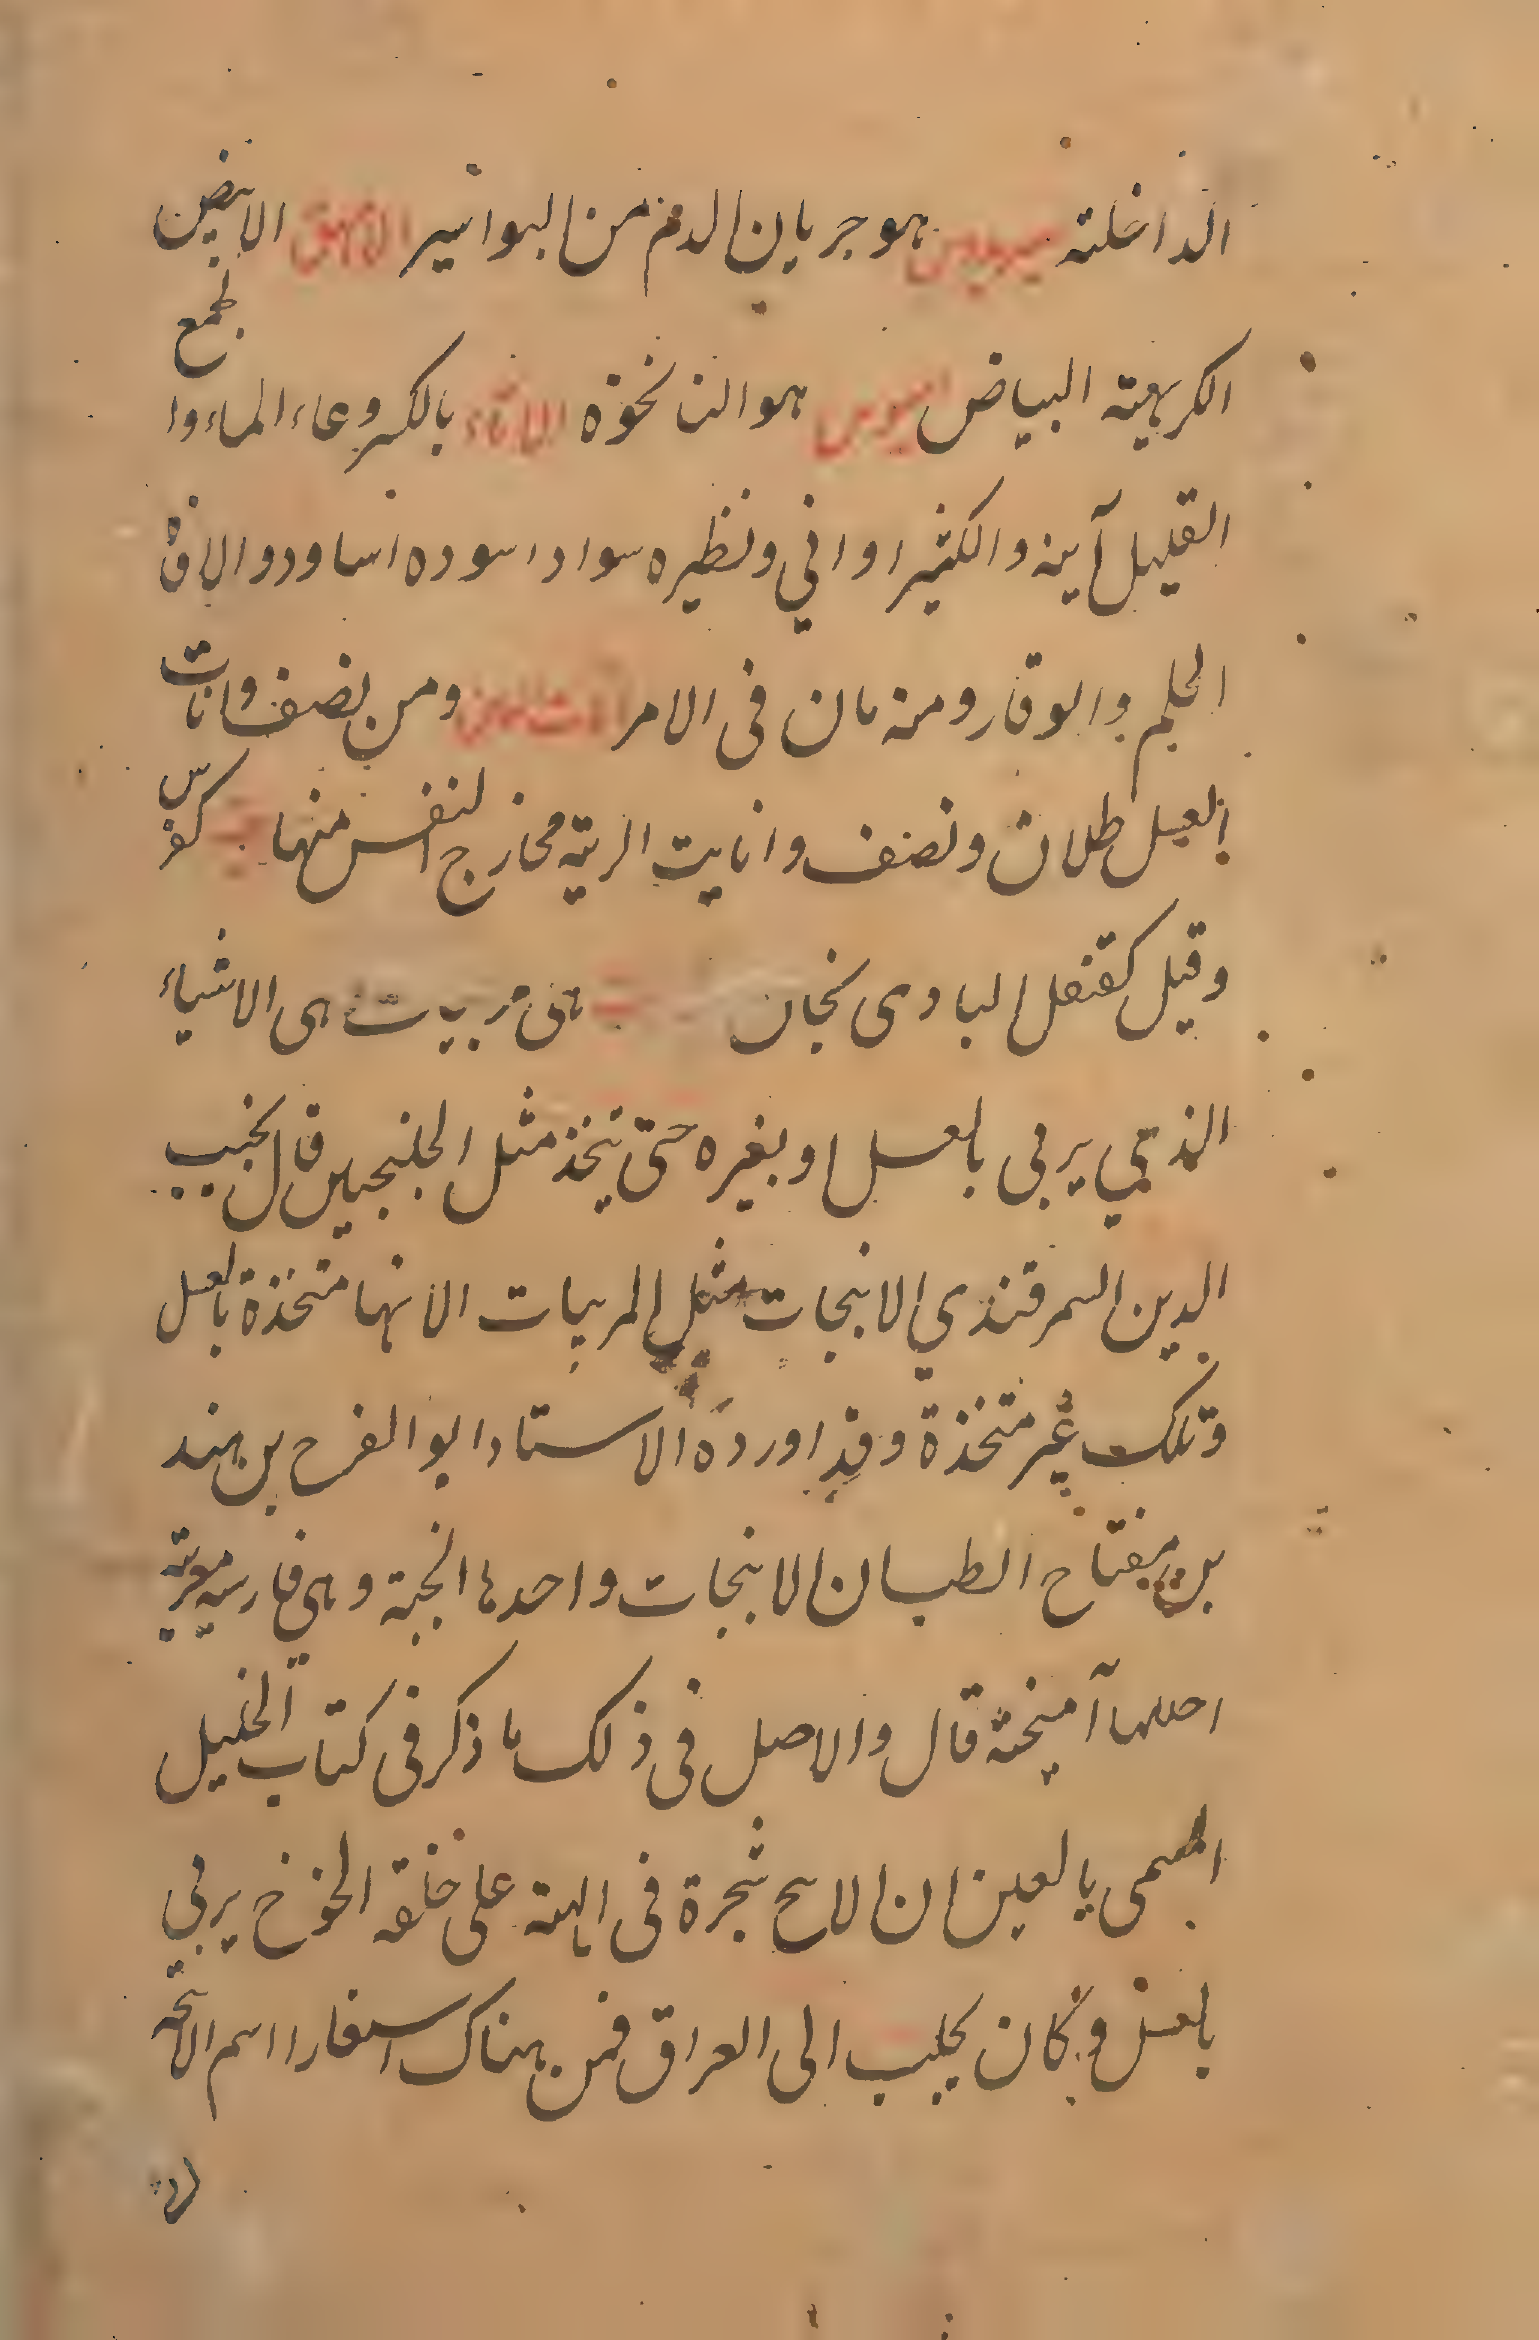 الداخلة هو جريان الدم من البواسير الامهق الابيض
الكريهة البياض هو النانخوة الاناء بالكسر وعاء الماء والجمع
القليل آنية والكثير اواني ونظيره سوار اسورة اساور والاناة
الحلم والوقار ومنه تان فى الامر ومن نصف واناث
العسل طلان ونصف وانابيت الرية مخارج النفس منها
وقيل كقنفل البادى نجان هى مربيات هى الاشياء
الذي يربى بالعسل او بغيره حتى يتخذ مثل الجلنجبين قال نجيب
الدين السمرقندي الانبجات مثل المربيات الا انها متخذة بالعسل
وتلك غير متخذة وقد اورده الاستاد ابو الفرح بن هند
بن مفتاح الطب ان الانبجات واحدها انبجة وهى فارسية معربة
اصلها آميخته قال والاصل فى ذلك ما ذكر فى كتاب الخليل
المسمى بالعين ان الانبج شجرة فى الهند على خلقة الخوخ يربى
بالعسل وكان يجلب الى العراق فمن هناك استعاروا اسم الانبجة